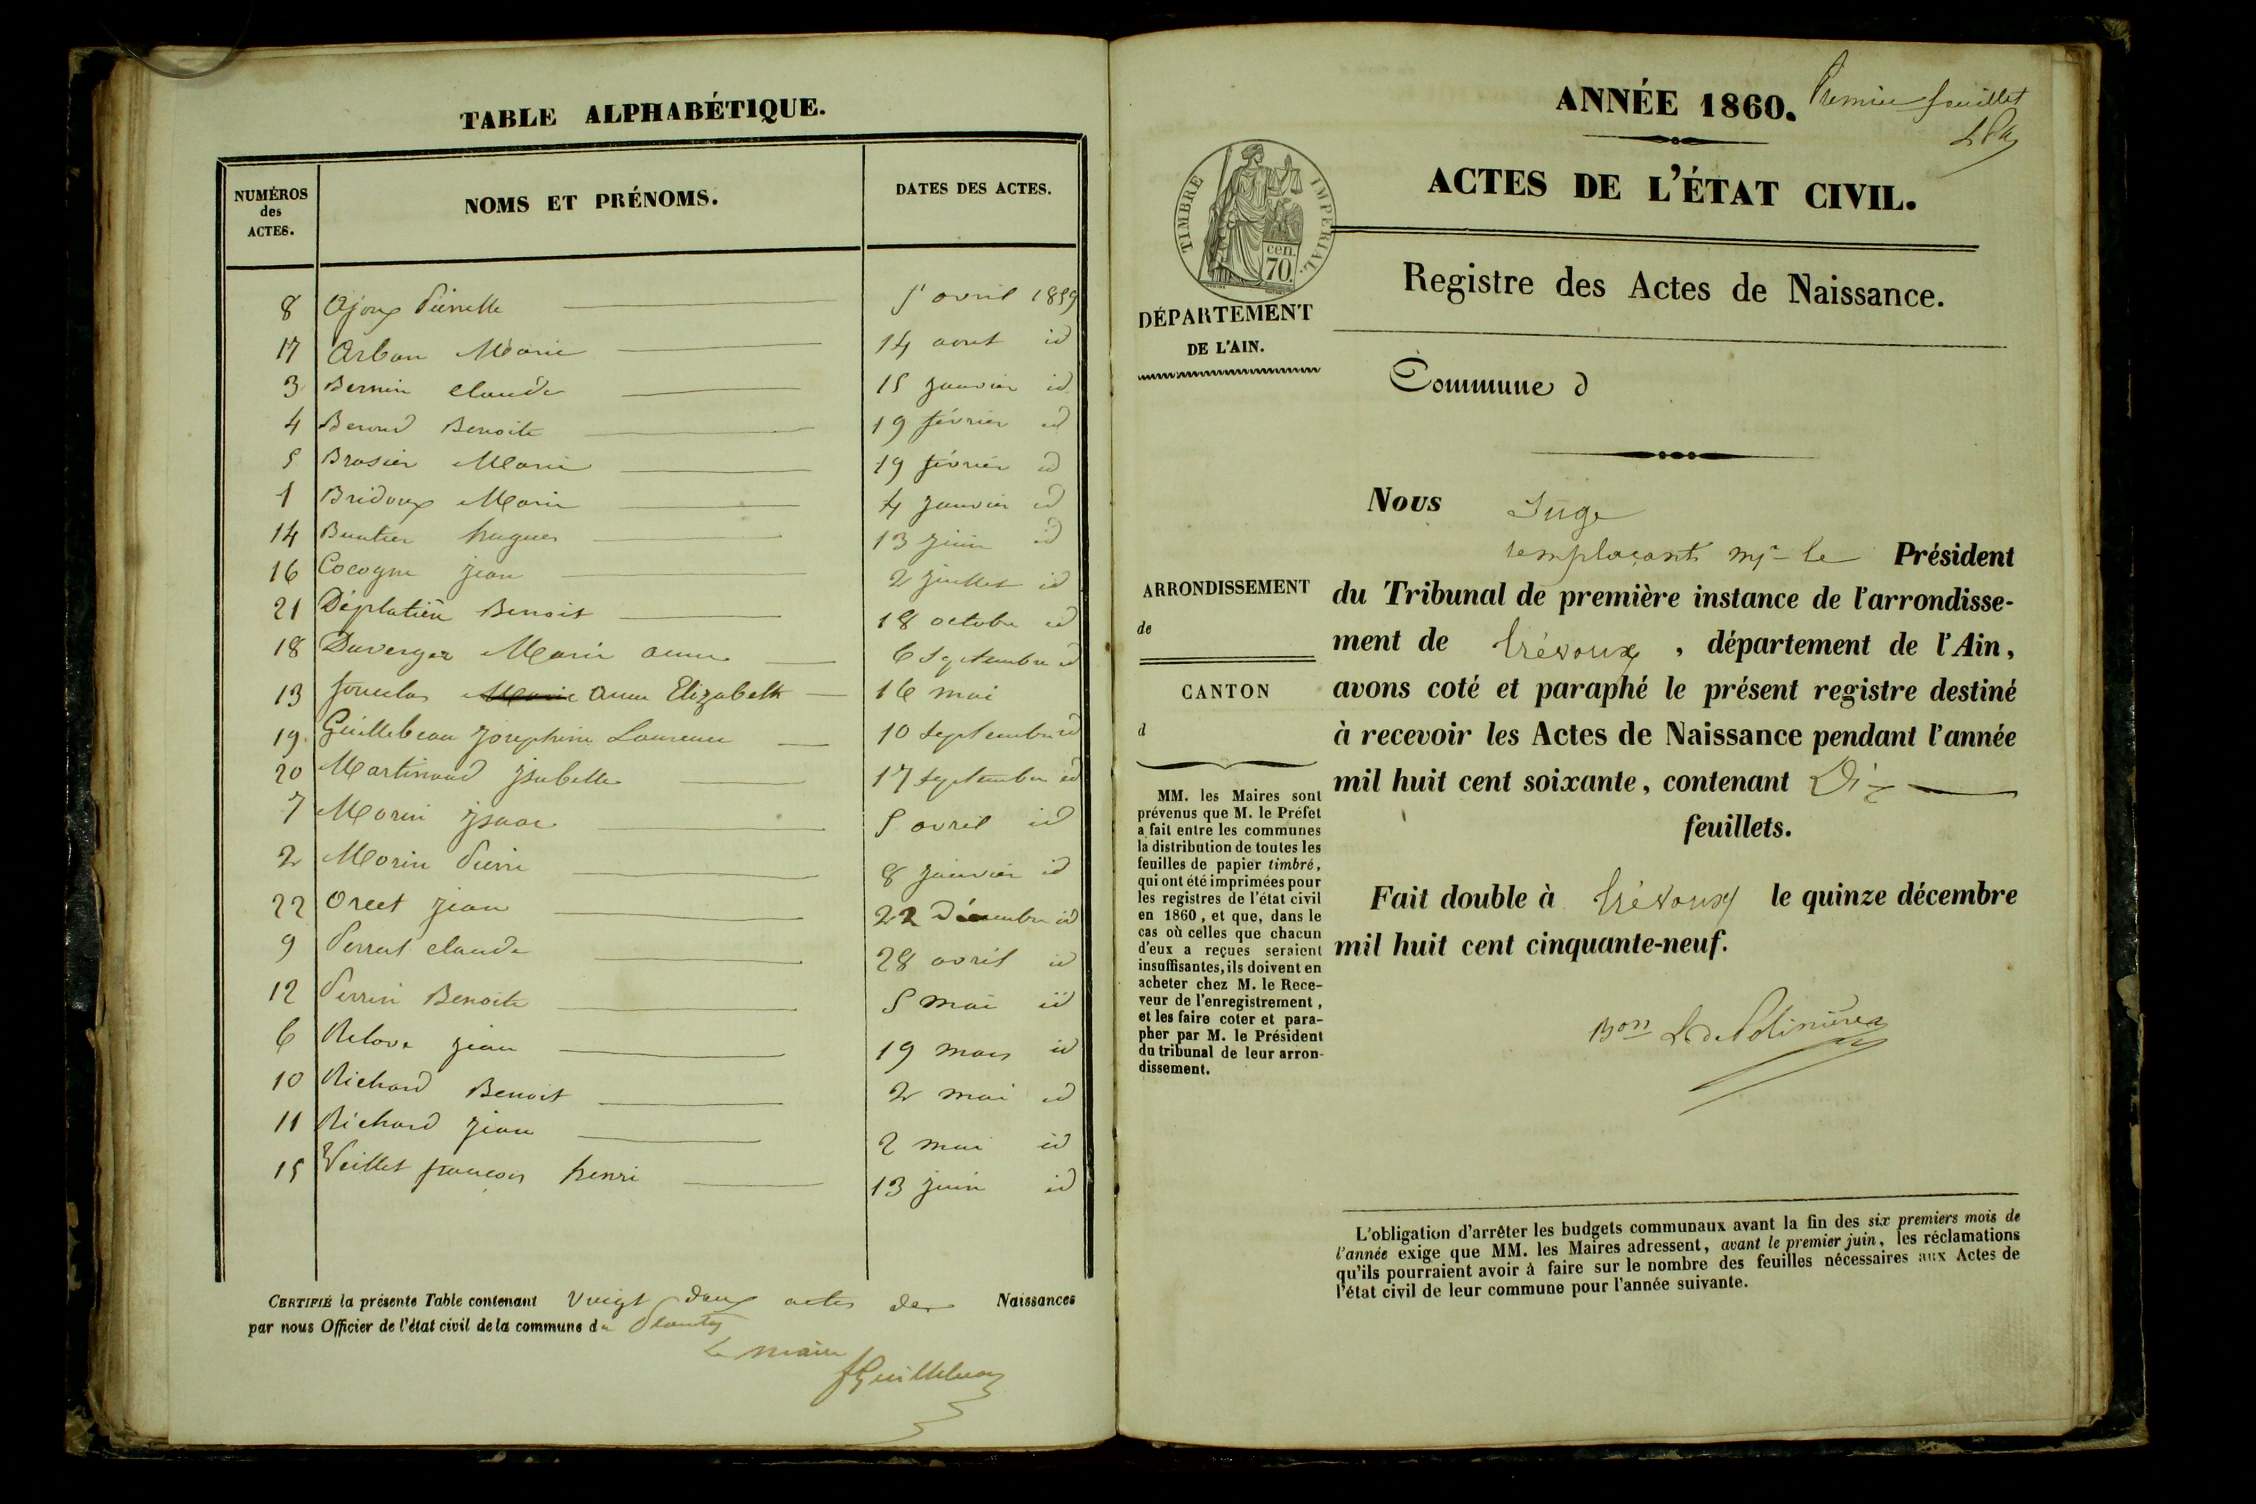 TABLE ALPHABÉTIQUE.
NUMÉROS
des
ACTES.
NOMS ET PRÉNOMS.
DATES DES ACTES.
8 Ajoux Pierrette 5 avril 1859
17 Arban Marie 14 aout id
3 Bernin Claude 15 janvier id
4 Beroud Benoite 19 février id
5 Brasier Marie 19 février id
1 Bridoux Marie 4 janvier id
14 Buatier hugues 13 juin id
16 Cocogne jean 2 juillet id
21 Déplatière Benoit 18 octobre id
18 Duverger Marie anne 6 septembre id
13 Marie anne Elizabeth 16 mai
19 Guillebeau josephine Laurence 10 septembre id
20 Martinaud jsabelle 17 septembre id
7 Morin jsaac 5 avril id
2 Morin Pierre 8 janvier id
22 Orcet jean 22 Décembre id
9 Perrat claude 28 avril id
12 Perrin Benoite 5 mai id
6 Relave jean 19 mars id
10 Richard Benoit 2 mai id
11 Richard jean 2 mai id
15 Veillet francois henri 13 juin id
CERTIFIÉ la présente Table contenant Vingt deux actes de Naissances
par nous Officier de l'état civil de la commune du Plantay
Le maire
Guillebeau
ANNÉE 1860.
Premier feuillet
ACTES DE L'ÉTAT CIVIL.
TIMBRE IMPÉRIAL.
cen.
70.
Registre des Actes de Naissance.
DÉPARTEMENT
DE L'AIN.
Commune d
Nous Juge
remplaçant Mr le Président
du Tribunal de première instance de l'arrondisse-
ment de Trévoux, département de l'Ain,
avons coté et paraphé le présent registre destiné
à recevoir les Actes de Naissance pendant l'année
mil huit cent soixante, contenant Dix
feuillets.
Fait double à Trévoux le quinze décembre
mil huit cent cinquante-neuf.
Bon L. de Polinière
ARRONDISSEMENT
de
CANTON
d
MM. les Maires sont
prévenus que M. le Préfet
a fait entre les communes
la distribution de toutes les
feuilles de papier timbré,
qui ont été imprimées pour
les registres de l'état civil
en 1860, et que, dans le
cas où celles que chacun
d'eux a reçues seraient
insuffisantes, ils doivent en
acheter chez M. le Rece-
veur de l'enregistrement,
et les faire coter et para-
pher par M. le Président
du tribunal de leur arron-
dissement.
L'obligation d'arrêter les budgets communaux avant la fin des six premiers mois de
l'année exige que MM. les Maires adressent, avant le premier juin, les réclamations
qu'ils pourraient avoir à faire sur le nombre des feuilles nécessaires aux Actes de
l'état civil de leur commune pour l'année suivante.